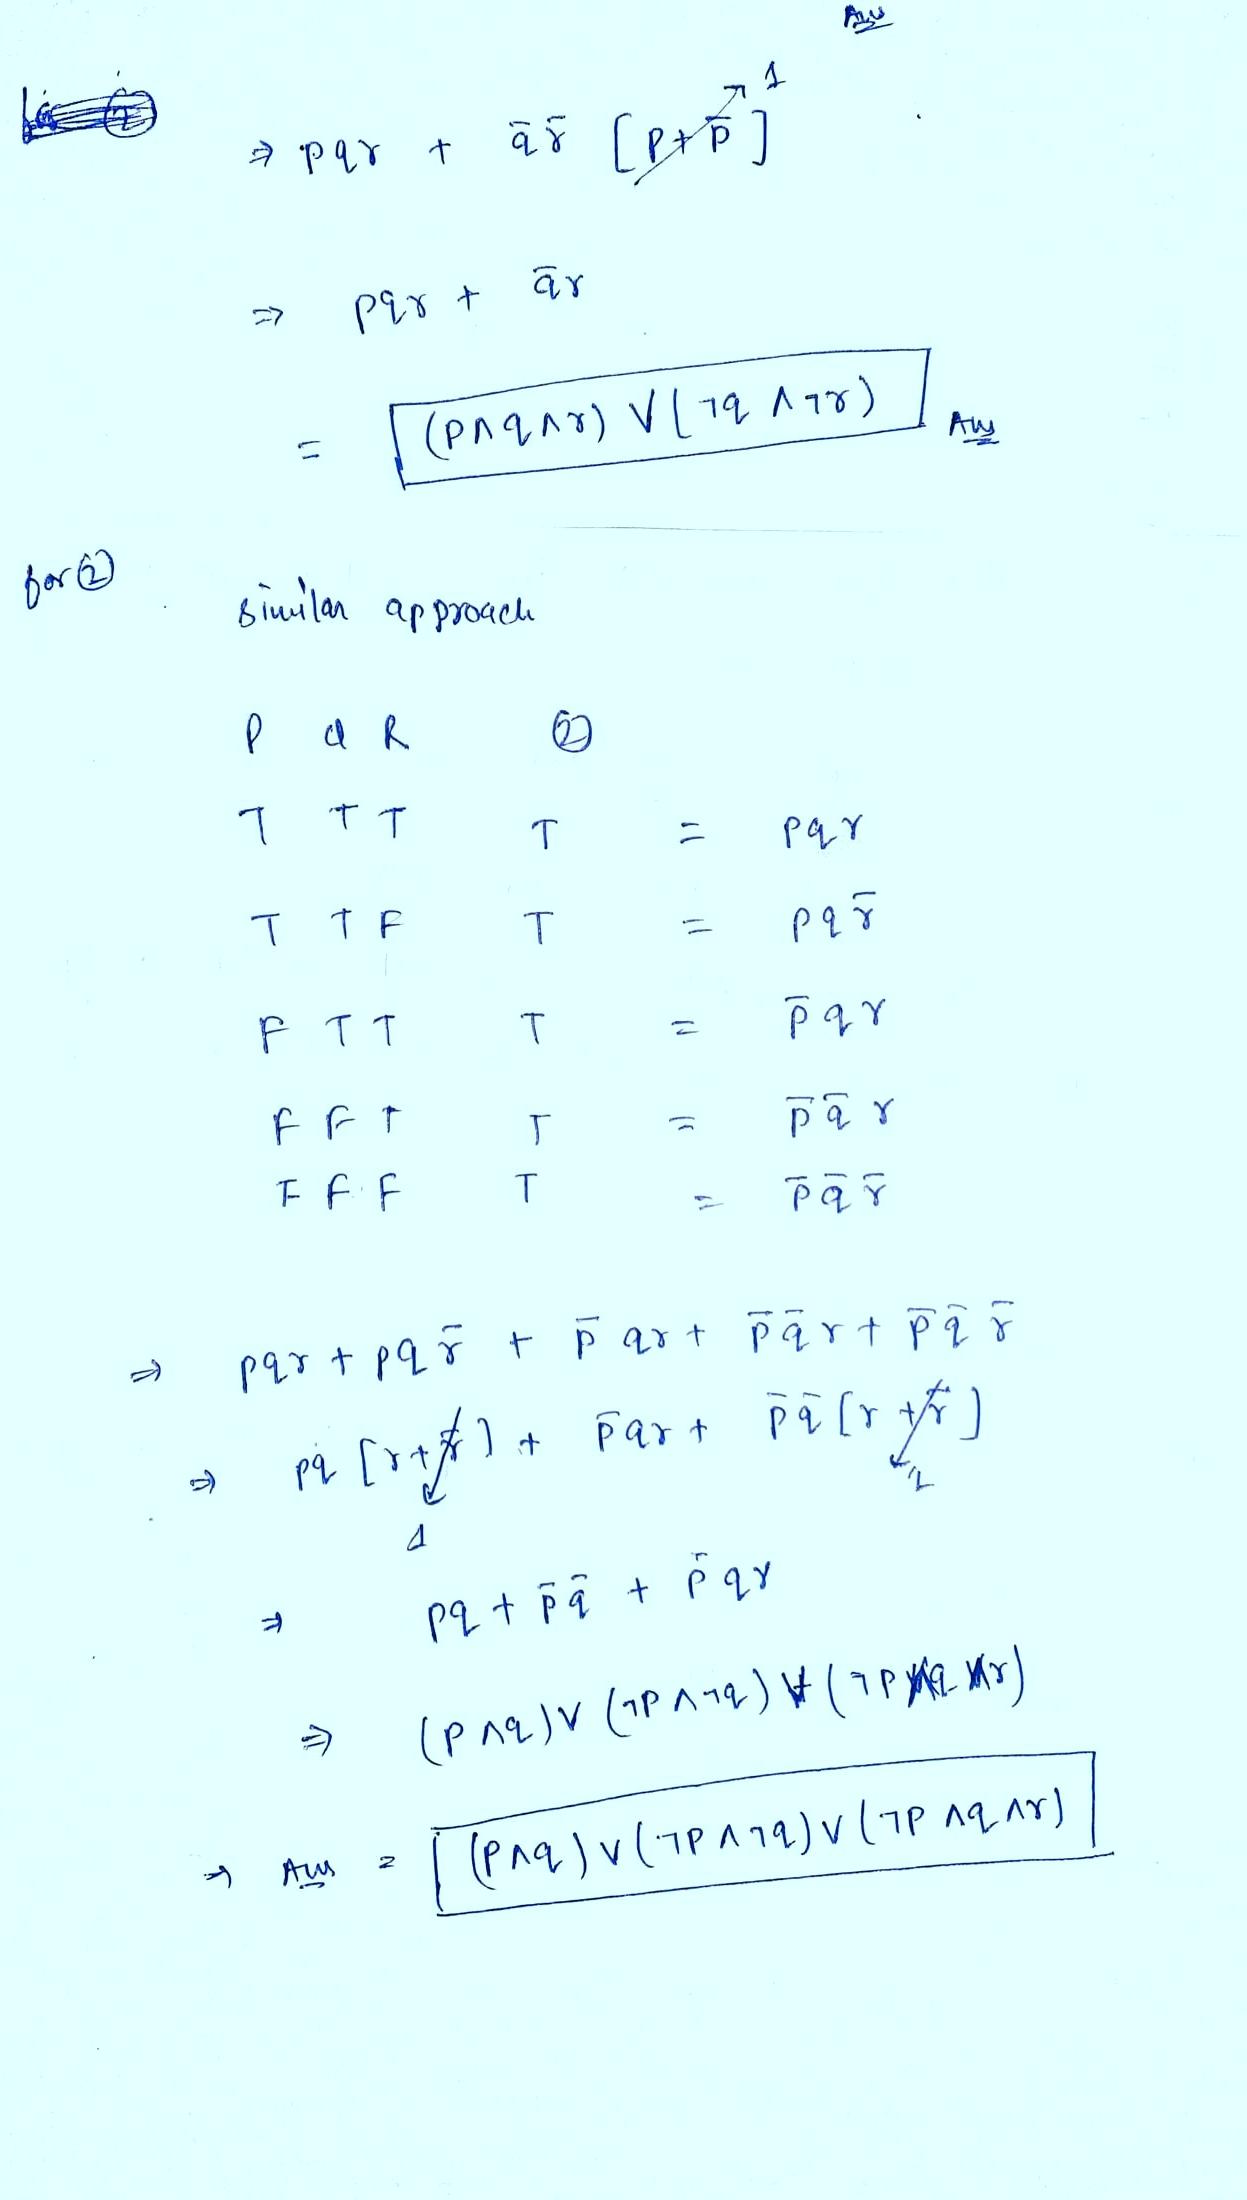 Ans
⇒ pqr + q̄ r̄ [p + p̄] 1
⇒ pqr + q̄r
= (p∧q∧r) ∨ (¬q ∧ ¬r) Ans
for ②
similar approach
P Q R ②
T T T T = pqr
T T F T = pq r̄
F T T T = p̄ qr
F F T T = p̄ q̄ r
F F F T = p̄ q̄ r̄
⇒ pqr + pq r̄ + p̄ qr + p̄ q̄ r + p̄ q̄ r̄
⇒ pq [r + r̄] + p̄qr + p̄q̄ [r + r̄]
1
⇒ pq + p̄ q̄ + p̄ qr
⇒ (p∧q) ∨ (¬p ∧ ¬q) ∨ (¬p ∧q ∧r)
⇒ Ans = (p∧q) ∨ (¬p ∧ ¬q) ∨ (¬p ∧q ∧r)